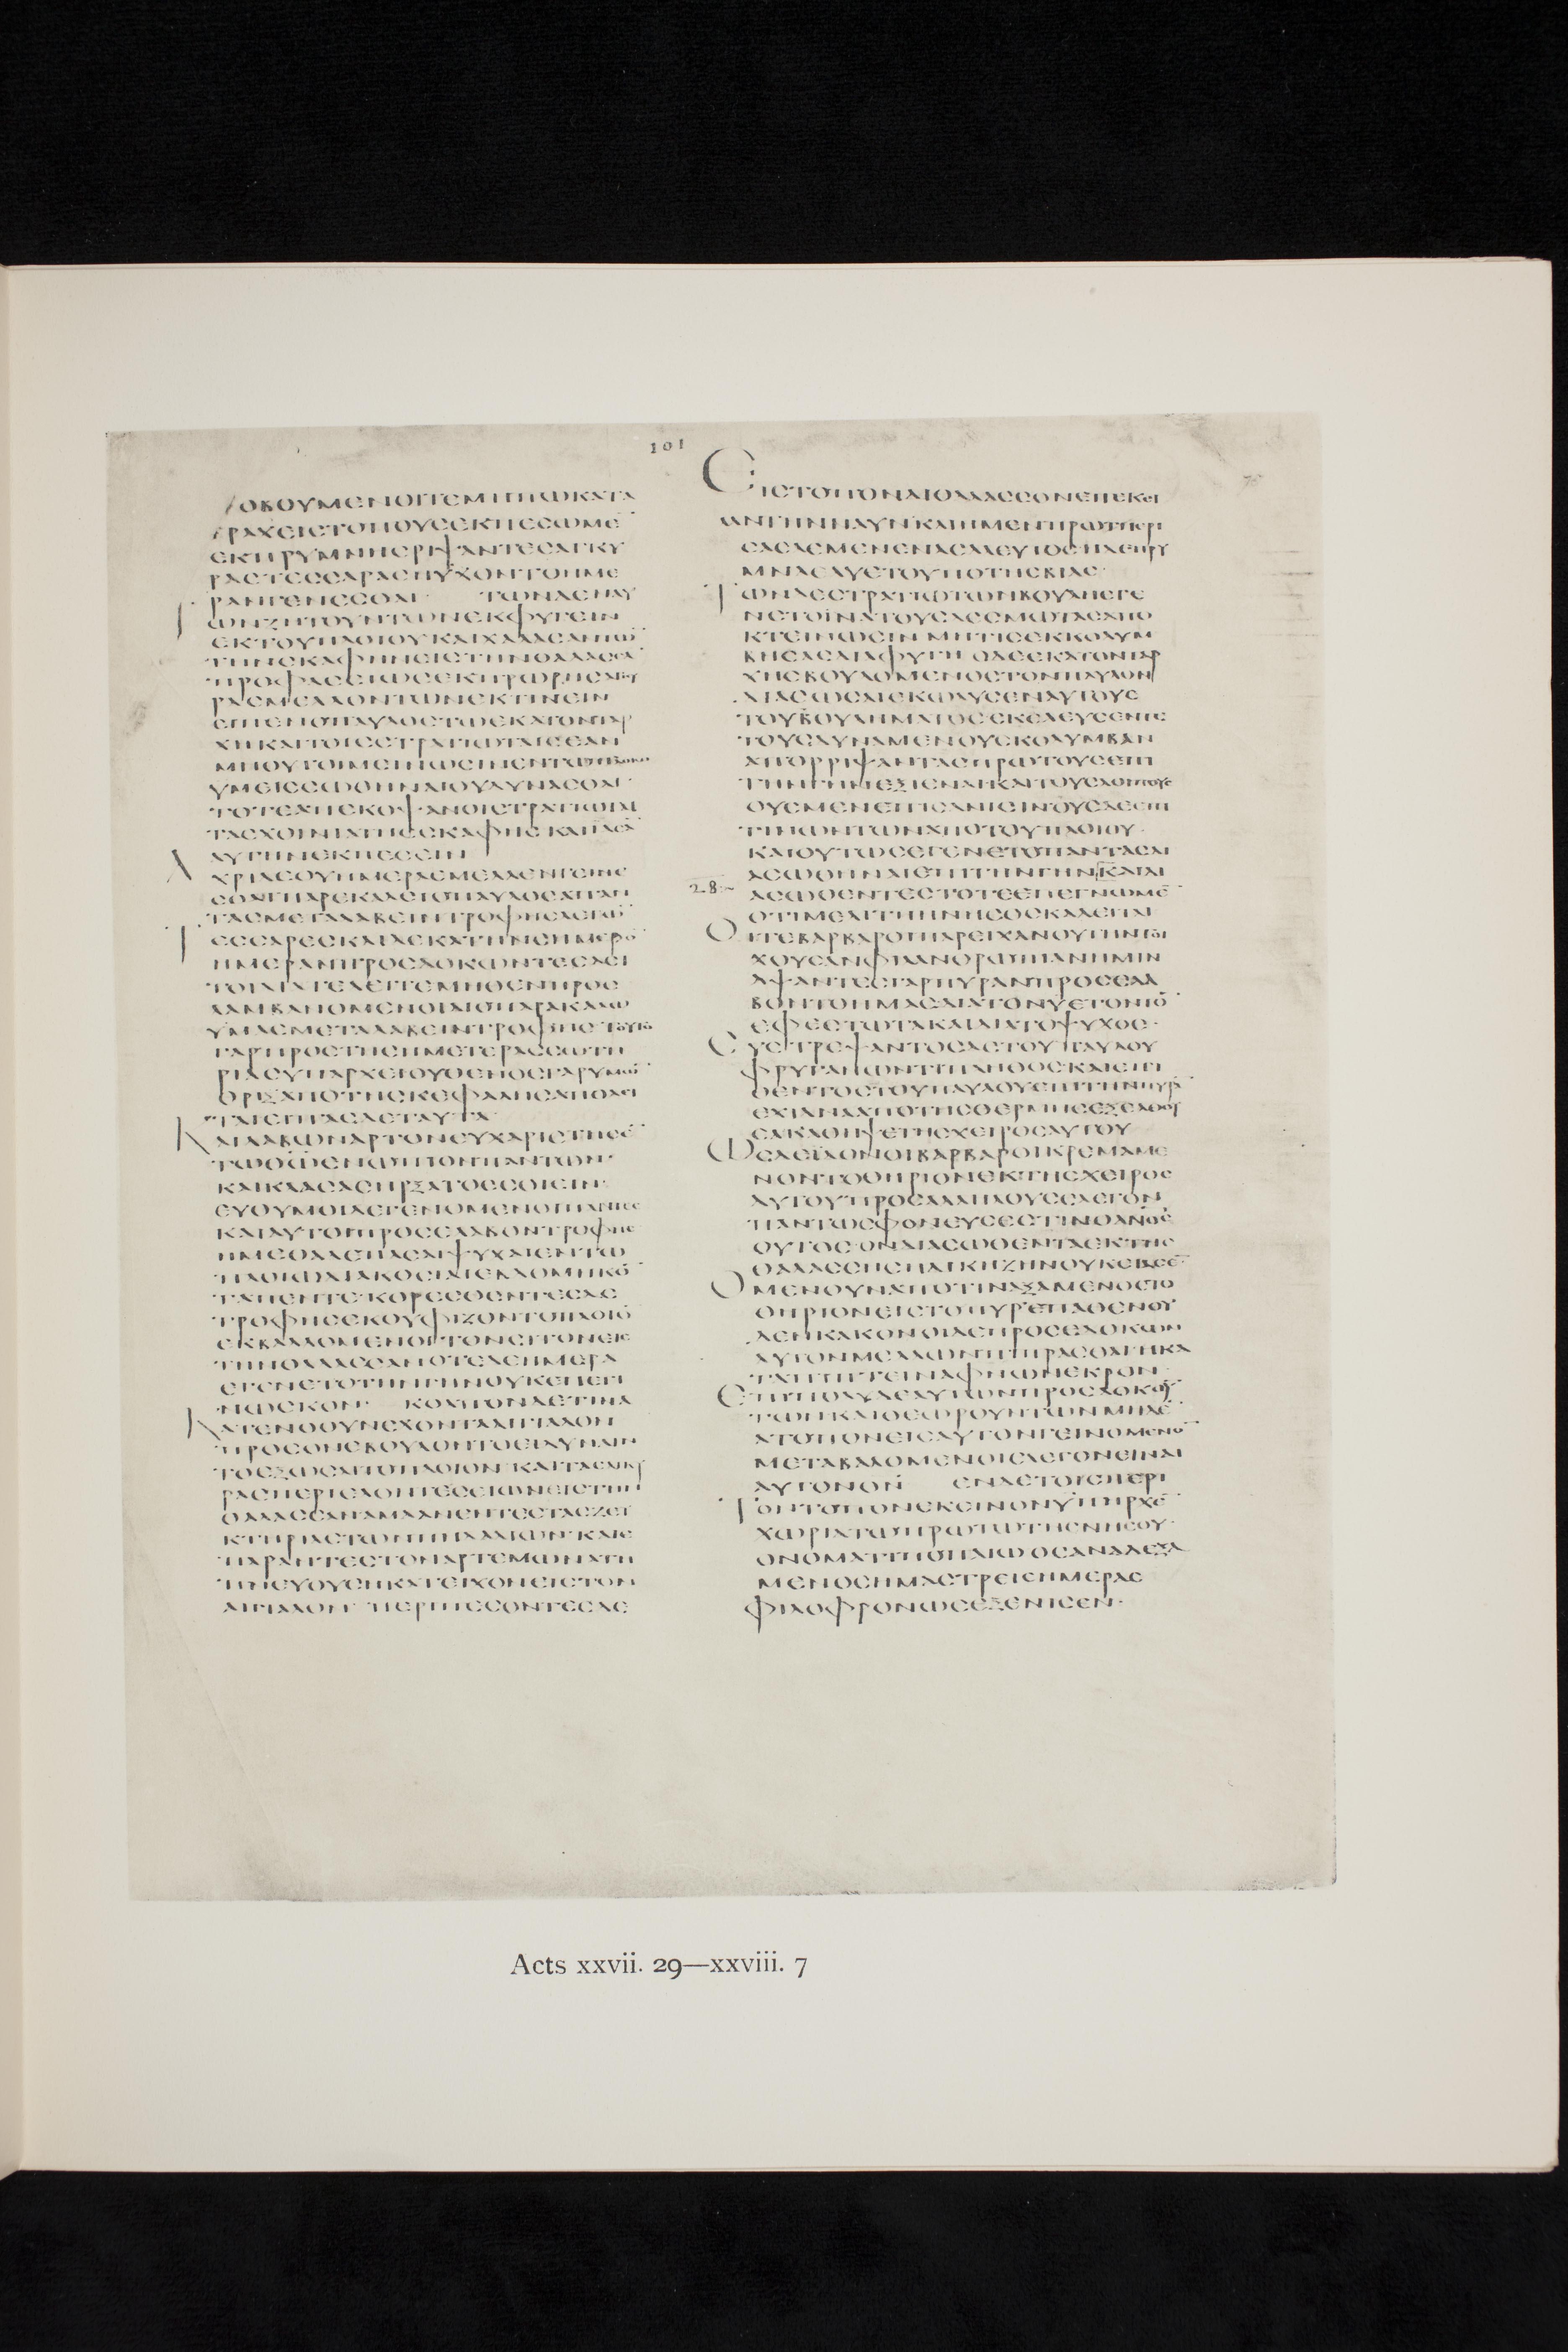 101
ΦΟΒΟΥΜΕΝΟΙΤΕΜΗΠΩΚΑΤΑ
ΤΡΑΧΕΙϹΤΟΠΟΥϹΕΚΠΕϹΩΜΕ̅
ΕΚΠΡΥΜΝΗϹΡΙΨΑΝΤΕϹΑΓΚΥ
ΡΑϹΤΕϹϹΑΡΑϹΗΥΧΟΝΤΟΗΜΕ
ΡΑΝΓΕΝΕϹΘΑΙ· ΤΩΝΔΕΝΑΥ
ΤΩΝΖΗΤΟΥΝΤΩΝΕΚΦΥΓΕΙΝ
ΕΚΤΟΥΠΛΟΙΟΥΚΑΙΧΑΛΑϹΑΝΤΩ̅
ΤΗΝϹΚΑΦΗΝΕΙϹΤΗΝΘΑΛΑϹϹΑ̅
ΠΡΟΦΑϹΕΙΩϹΕΚΠΡΩΡΗϹΑΓΚΥ
ΡΑϹΜΕΛΛΟΝΤΩΝΕΚΤΙΝΕΙΝ
ΕΙΠΕΝΟΠΑΥΛΟϹΤΩΕΚΑΤΟΝΤΑΡ
ΧΗΚΑΙΤΟΙϹϹΤΡΑΤΙΩΤΑΙϹΕΑΝ
ΜΗΟΥΤΟΙΜΕΙΝΩϹΕΙΝΕΝΤΩΠΛΟΙΩ
ΥΜΕΙϹϹΩΘΗΝΑΙΟΥΔΥΝΑϹΘΑΙ·
ΤΟΤΕΑΠΕΚΟΨΑΝΟΙϹΤΡΑΤΙΩΤΑΙ
ΤΑϹΧΟΙΝΙΑΤΗϹϹΚΑΦΗϹΚΑΙΕΙΑϹΑ̅
ΑΥΤΗΝΕΚΠΕϹΕΙΝ
ΑΧΡΙΔΕΟΥΗΜΕΡΑΕΜΕΛΛΕΝΓΕΙΝΕ
ϹΘΑΙΠΑΡΕΚΑΛΕΙΟΠΑΥΛΟϹΑΠΑΝ
ΤΑϹΜΕΤΑΛΑΒΕΙΝΤΡΟΦΗϹΛΕΓΩ̅
ΤΕϹϹΑΡΕϹΚΑΙΔΕΚΑΤΗΝϹΗΜΕΡΟ̅
ΗΜΕΡΑΝΠΡΟϹΔΟΚΩΝΤΕϹΑϹΙ
ΤΟΙΔΙΑΤΕΛΕΙΤΕΜΗΘΕΝΠΡΟϹ
ΛΑΜΒΑΝΟΜΕΝΟΙΔΙΟΠΑΡΑΚΑΛΩ
ΥΜΑϹΜΕΤΑΛΑΒΕΙΝΤΡΟΦΗϹΤΟΥΤΟ
ΓΑΡΠΡΟϹΤΗϹΗΜΕΤΕΡΑϹϹΩΤΗ
ΡΙΑϹΥΠΑΡΧΕΙΟΥΘΕΝΟϹΓΑΡΥΜΩ̅
ΘΡΙΞΑΠΟΤΗϹΚΕΦΑΛΗϹΑΠΟΛΕΙ
ΤΑΙΕΙΠΑϹΔΕΤΑΥΤΑ
ΚΑΙΛΑΒΩΝΑΡΤΟΝΕΥΧΑΡΙϹΤΗϹΕ̅
ΤΩΘ̅Ω̅ΕΝΩΠΙΟΝΠΑΝΤΩΝ·
ΚΑΙΚΛΑϹΑϹΗΡΞΑΤΟΕϹΘΙΕΙΝ·
ΕΥΘΥΜΟΙΔΕΓΕΝΟΜΕΝΟΙΠΑΝΤΕϹ
ΚΑΙΑΥΤΟΙΠΡΟϹΕΛΑΒΟΝΤΡΟΦΗϹ
ΗΜΕΘΑΔΕΠΑϹΑΙΨΥΧΑΙΕΝΤΩ
ΠΛΟΙΩΔΙΑΚΟϹΙΑΙΕΒΔΟΜΗΚΟ̅
ΤΑΠΕΝΤΕ·ΚΟΡΕϹΘΕΝΤΕϹΔΕ
ΤΡΟΦΗϹΕΚΟΥΦΙΖΟΝΤΟΠΛΟΙΟ̅
ΕΚΒΑΛΛΟΜΕΝΟΙΤΟΝϹΙΤΟΝΕΙϹ
ΤΗΝΘΑΛΑϹϹΑΝΟΤΕΔΕΗΜΕΡΑ
ΕΓΕΝΕΤΟΤΗΝΓΗΝΟΥΚΕΠΕΓΙ
ΝΩϹΚΟΝ· ΚΟΛΠΟΝΔΕΤΙΝΑ
ΚΑΤΕΝΟΟΥΝΕΧΟΝΤΑΑΙΓΙΑΛΟΝ
ΠΡΟϹΟΝΕΒΟΥΛΟΝΤΟΕΙΔΥΝΑΙΝ
ΤΟΕΞΩϹΑΙΤΟΠΛΟΙΟΝΚΑΙΤΑϹΑΓΚΥ
ΡΑϹΠΕΡΙΕΛΟΝΤΕϹΕΙΩΝΕΙϹΤΗΝ
ΘΑΛΑϹϹΑΝΑΜΑΑΝΕΝΤΕϹΤΑϹΖΕΥ
ΚΤΗΡΙΑϹΤΩΝΠΗΔΑΛΙΩΝΚΑΙΕ
ΠΑΡΑΝΤΕϹΤΟΝΑΡΤΕΜΩΝΑΤΗ
ΠΝΕΟΥϹΗΚΑΤΕΙΧΟΝΕΙϹΤΟΝ
ΑΙΓΙΑΛΟΝ· ΠΕΡΙΠΕϹΟΝΤΕϹΔΕ
ΕΙϹΤΟΠΟΝΔΙΘΑΛΑϹϹΟΝΕΠΕΚΕΙ
ΛΑΝΤΗΝΝΑΥΝΚΑΙΗΜΕΝΠΡΩΡΑΕΡΙ
ϹΑϹΑΕΜΕΙΝΕΝΑϹΑΛΕΥΤΟϹΗΔΕΠΡΥ
ΜΝΑΕΛΥΕΤΟΥΠΟΤΗϹΒΙΑϹ·
ΤΩΝΔΕϹΤΡΑΤΙΩΤΩΝΒΟΥΛΗΕΓΕ
ΝΕΤΟΪΝΑΤΟΥϹΔΕϹΜΩΤΑϹΑΠΟ
ΚΤΕΙΝΩϹΕΙΝΜΗΤΙϹΕΚΚΟΛΥΜ
ΒΗϹΑϹΔΙΑΦΥΓΗ·ΟΔΕΕΚΑΤΟΝΤΑΡ
ΧΗϹΒΟΥΛΟΜΕΝΟϹΤΟΝΠΑΥΛΟΝ
ΔΙΑϹΩϹΑΙΕΚΩΛΥϹΕΝΑΥΤΟΥϹ
ΤΟΥΒΟΥΛΗΜΑΤΟϹΕΚΕΛΕΥϹΕΝΤΕ
ΤΟΥϹΔΥΝΑΜΕΝΟΥϹΚΟΛΥΜΒΑΝ
ΑΠΟΡΡΙΨΑΝΤΑϹΠΡΩΤΟΥϹΕΠΙ
ΤΗΝΓΗΝΕΞΙΕΝΑΙΚΑΙΤΟΥϹΛΟΙΠΟΥϹ
ΟΥϹΜΕΝΕΠΙϹΑΝΙϹΙΝΟΥϹΔΕΕΠΙ
ΤΙΝΩΝΤΩΝΑΠΟΤΟΥΠΛΟΙΟΥ·
ΚΑΙΟΥΤΩϹΕΓΕΝΕΤΟΠΑΝΤΑϹΔΙ
ΑϹΩΘΗΝΑΙΕΠΙΤΗΝΓΗΝΚΑΙΔΙ
28 ΑϹΩΘΕΝΤΕϹΤΟΤΕΕΠΕΓΝΩΜΕ̅
ΟΤΙΜΕΛΙΤΗΗΝΗϹΟϹΚΑΛΕΙΤΑΙ
ΟΙΤΕΒΑΡΒΑΡΟΙΠΑΡΕΙΧΑΝΟΥΤΗΝΤΥ
ΧΟΥϹΑΝΦΙΛΑΝΘΡΩΠΙΑΝΗΜΙΝ
ΑΨΑΝΤΕϹΓΑΡΠΥΡΑΝΠΡΟϹΕΛΑ
ΒΟΝΤΟΗΜΑϹΔΙΑΤΟΝΥΕΤΟΝΤΟ̅
ΕΦΕϹΤΩΤΑΚΑΙΔΙΑΤΟΨΥΧΟϹ·
ϹΥϹΤΡΕΨΑΝΤΟϹΔΕΤΟΥΠΑΥΛΟΥ
ΦΡΥΓΑΝΩΝΤΙΠΛΗΘΟϹΚΑΙΕΠΙ
ΘΕΝΤΟϹΤΟΥΠΑΥΛΟΥΕΠΙΤΗΝΠΥΡΑ̅
ΕΧΙΔΝΑΑΠΟΤΗϹΘΕΡΜΗϹΕΞΕΛΘΟΥ
ϹΑΚΑΘΗΨΕΤΗϹΧΕΙΡΟϹΑΥΤΟΥ
ΩϹΔΕΪΔΟΝΟΙΒΑΡΒΑΡΟΙΚΡΕΜΑΜΕ
ΝΟΝΤΟΘΗΡΙΟΝΕΚΤΗϹΧΕΙΡΟϹ
ΑΥΤΟΥΠΡΟϹΑΛΛΗΛΟΥϹΕΛΕΓΟΝ
ΠΑΝΤΩϹΦΟΝΕΥϹΕϹΤΙΝΟΑΝ̅Ο̅Ϲ̅
ΟΥΤΟϹΟΝΔΙΑϹΩΘΕΝΤΑΕΚΤΗϹ
ΘΑΛΑϹϹΗϹΗΔΙΚΗΖΗΝΟΥΚΕΙΑϹΕ̅
ΟΜΕΝΟΥΝΑΠΟΤΙΝΑΞΑΜΕΝΟϹΤΟ
ΘΗΡΙΟΝΕΙϹΤΟΠΥΡΕΠΑΘΕΝΟΥ
ΔΕΝΚΑΚΟΝΟΙΔΕΠΡΟϹΕΔΟΚΩΝ
ΑΥΤΟΝΜΕΛΛΩΝΠΙΠΡΑϹΘΑΙΗΚΑ
ΤΑΠΙΠΤΕΙΝΑΦΝΩΝΕΚΡΟΝ·
ΕΠΙΠΟΛΥΔΕΑΥΤΩΝΠΡΟϹΔΟΚΩ̅
ΤΩΝΚΑΙΘΕΩΡΟΥΝΤΩΝΜΗΔΕ̅
ΑΤΟΠΟΝΕΙϹΑΥΤΟΝΓΕΙΝΟΜΕΝΟ̅
ΜΕΤΑΒΑΛΟΜΕΝΟΙΕΛΕΓΟΝΕΙΝΑΙ
ΑΥΤΟΝΘ̅Ν̅ ΕΝΔΕΤΟΙϹΠΕΡΙ
ΤΟΝΤΟΠΟΝΕΚΕΙΝΟΝΥΠΗΡΧΕ̅
ΧΩΡΙΑΤΩΠΡΩΤΩΤΗϹΝΗϹΟΥ·
ΟΝΟΜΑΤΙΠΟΠΛΙΩΟϹΑΝΑΔΕΞΑ
ΜΕΝΟϹΗΜΑϹΤΡΕΙϹΗΜΕΡΑϹ
ΦΙΛΟΦΡΟΝΩϹΕΞΕΝΙϹΕΝ·
Acts xxvii. 29—xxviii. 7